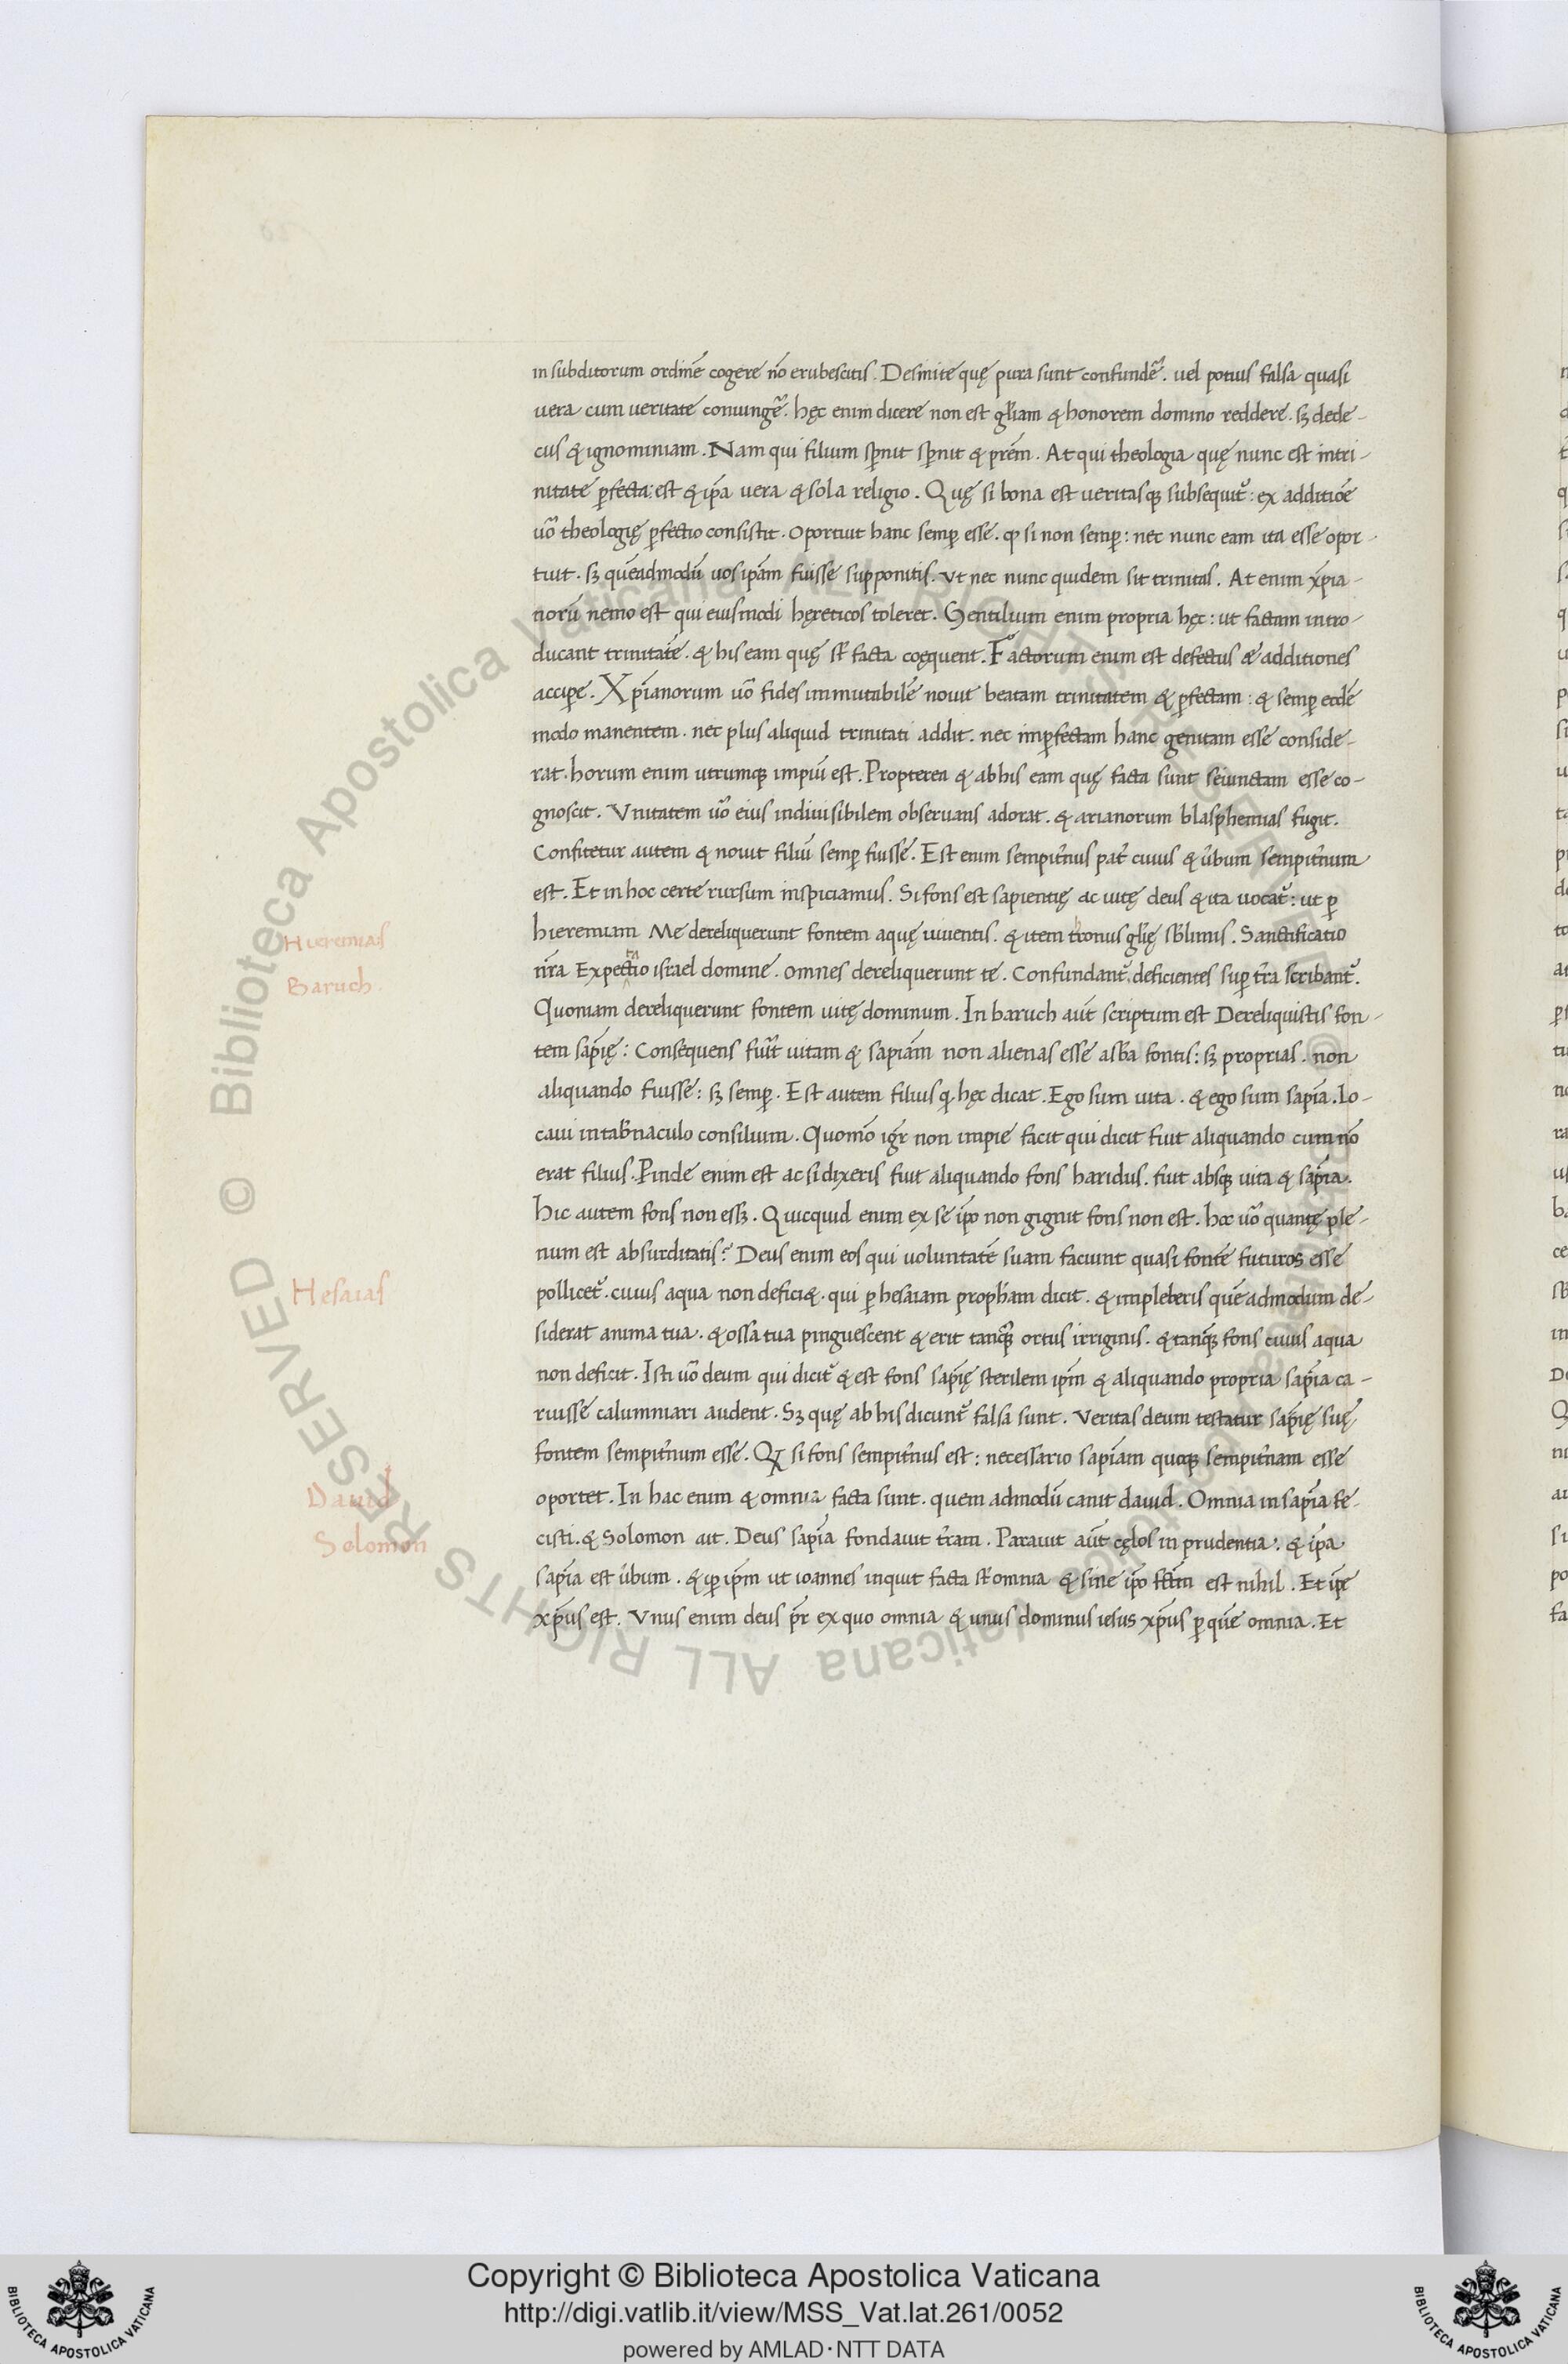 in subditorum ordinē cogere nō erubescitis. Desinite quę pura sunt confundẽ. uel potius falsa quasi
uera cum ueritate coniungẽ. hęc enim dicere non est gl̃iam & honorem domino reddere. sꝫ dede-
cus & ignominiam. Nam qui filium sp̃nit sp̃nit & pr̄em. At qui theologia quę nunc est in tri-
nitate ꝑfecta: est & ip̄a uera & sola religio. Quę si bona est ueritasqꝫ subsequit᷑: ex additiōe
uo᷑ theologię ꝑfectio consistit. oportuit hanc semꝑ esse. qƺ si non semꝑ: nec nunc eam ita esse opor-
tuit. sꝫ quēadmodū uos ip̄am fuisse supponitis. Vt nec nunc quidem sit trinitas. At enim xp̄ia-
norū nemo est qui eiusmodi hęreticos toleret. Gentilium enim propria hęc: ut factam intro-
ducant trinitatē. & his eam quę st᷑ facta coęquent. Factorum enim est defectus & additiones
acciꝑe. Xp̄ianorum uo᷑ fides immutabilē nouit beatam trinitatem & ꝑfectam: & semꝑ eodē
modo manentem. nec plus aliquid trinitati addit. nec imꝑfectam hanc genitam esse conside-
rat. horum enim utrumqꝫ impiū est. Propterea & ab his eam quę facta sunt seiunctam esse co-
gnoscit. Vnitatem uo᷑ eius indiuisibilem obseruans adorat. & arianorum blasphemias fugit.
Confitetur autem & nouit filiū semꝑ fuisse. Est enim sempit̃nus pat᷑ cuius & ũbum sempit̃num
est. Et in hoc certe rursum inspiciamus. Si fons est sapientię ac uitę deus & ita uocat᷑: ut ꝑ
hieremiam Me dereliquerunt fontem aquę uiuentis. & item thronus gl̃ię sb̃limis. Sanctificatio
nr̄a Expectatio israel domine. omnes dereliquerunt te. Confundant᷑ deficientes suꝑ t̃ra scribant᷑.
Quoniam dereliquerunt fontem uitę dominum. In baruch aūt scriptum est Dereliquistis fon-
tem sap̄ię: Consequens fu᷑it uitam & sapiām non alienas esse a sb̃a fontis: sꝫ proprias. non
aliquando fuisse: sꝫ semꝑ. Est autem filius q hęc dicat. Ego sum uita. & ego sum sapīa. lo-
caui in tab̃naculo consilium. Quomō igr̃ non impie facit qui dicit fuit aliquando cum nō
erat filius. Pinde enim est ac si dixeris fuit aliquando fons haridus. fuit absqꝫ uita & sapīa.
hic autem fons non essꝫ. Quicquid enim ex se ip̄o non gignit fons non est. hoc uo᷑ quantę ple-
num est absurditatis? Deus enim eos qui uoluntatē suam faciunt quasi fontē futuros esse
pollicet᷑. cuius aqua non defici&. qui ꝑ hesaiam proph̃am dicit. & impleberis quē admodum de-
siderat anima tua. & ossa tua pinguescent & erit tanqꝫ ortus irriginis. & tanqꝫ fons cuius aqua
non deficit. Isti uo᷑ deum qui dicit᷑ & est fons sap̄ię sterilem ip̄m & aliquando propria sapīa ca-
ruisse calumniari audent. Sꝫ quę ab his dicunt᷑ falsa sunt. Veritas deum testatur sap̄ię suę
fontem sempit̃num esse. Qƺ si fons sempit̃nus est: necessario sapīam quoqꝫ sempit̃nam esse
oportet. In hac enim & omnia facta sunt. quem admodū canit dauid. Omnia in sapīa fe-
cisti. & Solomon ait. Deus sapīa fondauit t̃ram. Parauit aūt cęlos in prudentia: & ip̄a
sapīa est ũbum. & ꝑ ip̄m ut ioannes inquit facta st᷑ omnia & sine ip̄o fct̄m est nihil. Et ip̄e
xp̄us est. Vnus enim deus pr̄ ex quo omnia & unus dominus iesus xp̄us ꝑ quē omnia. Et
Hieremias
Baruch.
Hesaias
Dauid
Solomon
© Biblioteca Apostolica Vaticana ALL RIGHTS RESERVED
Copyright © Biblioteca Apostolica Vaticana
http://digi.vatlib.it/view/MSS_Vat.lat.261/0052
powered by AMLAD·NTT DATA
BIBLIOTECA APOSTOLICA VATICANA
BIBLIOTECA APOSTOLICA VATICANA